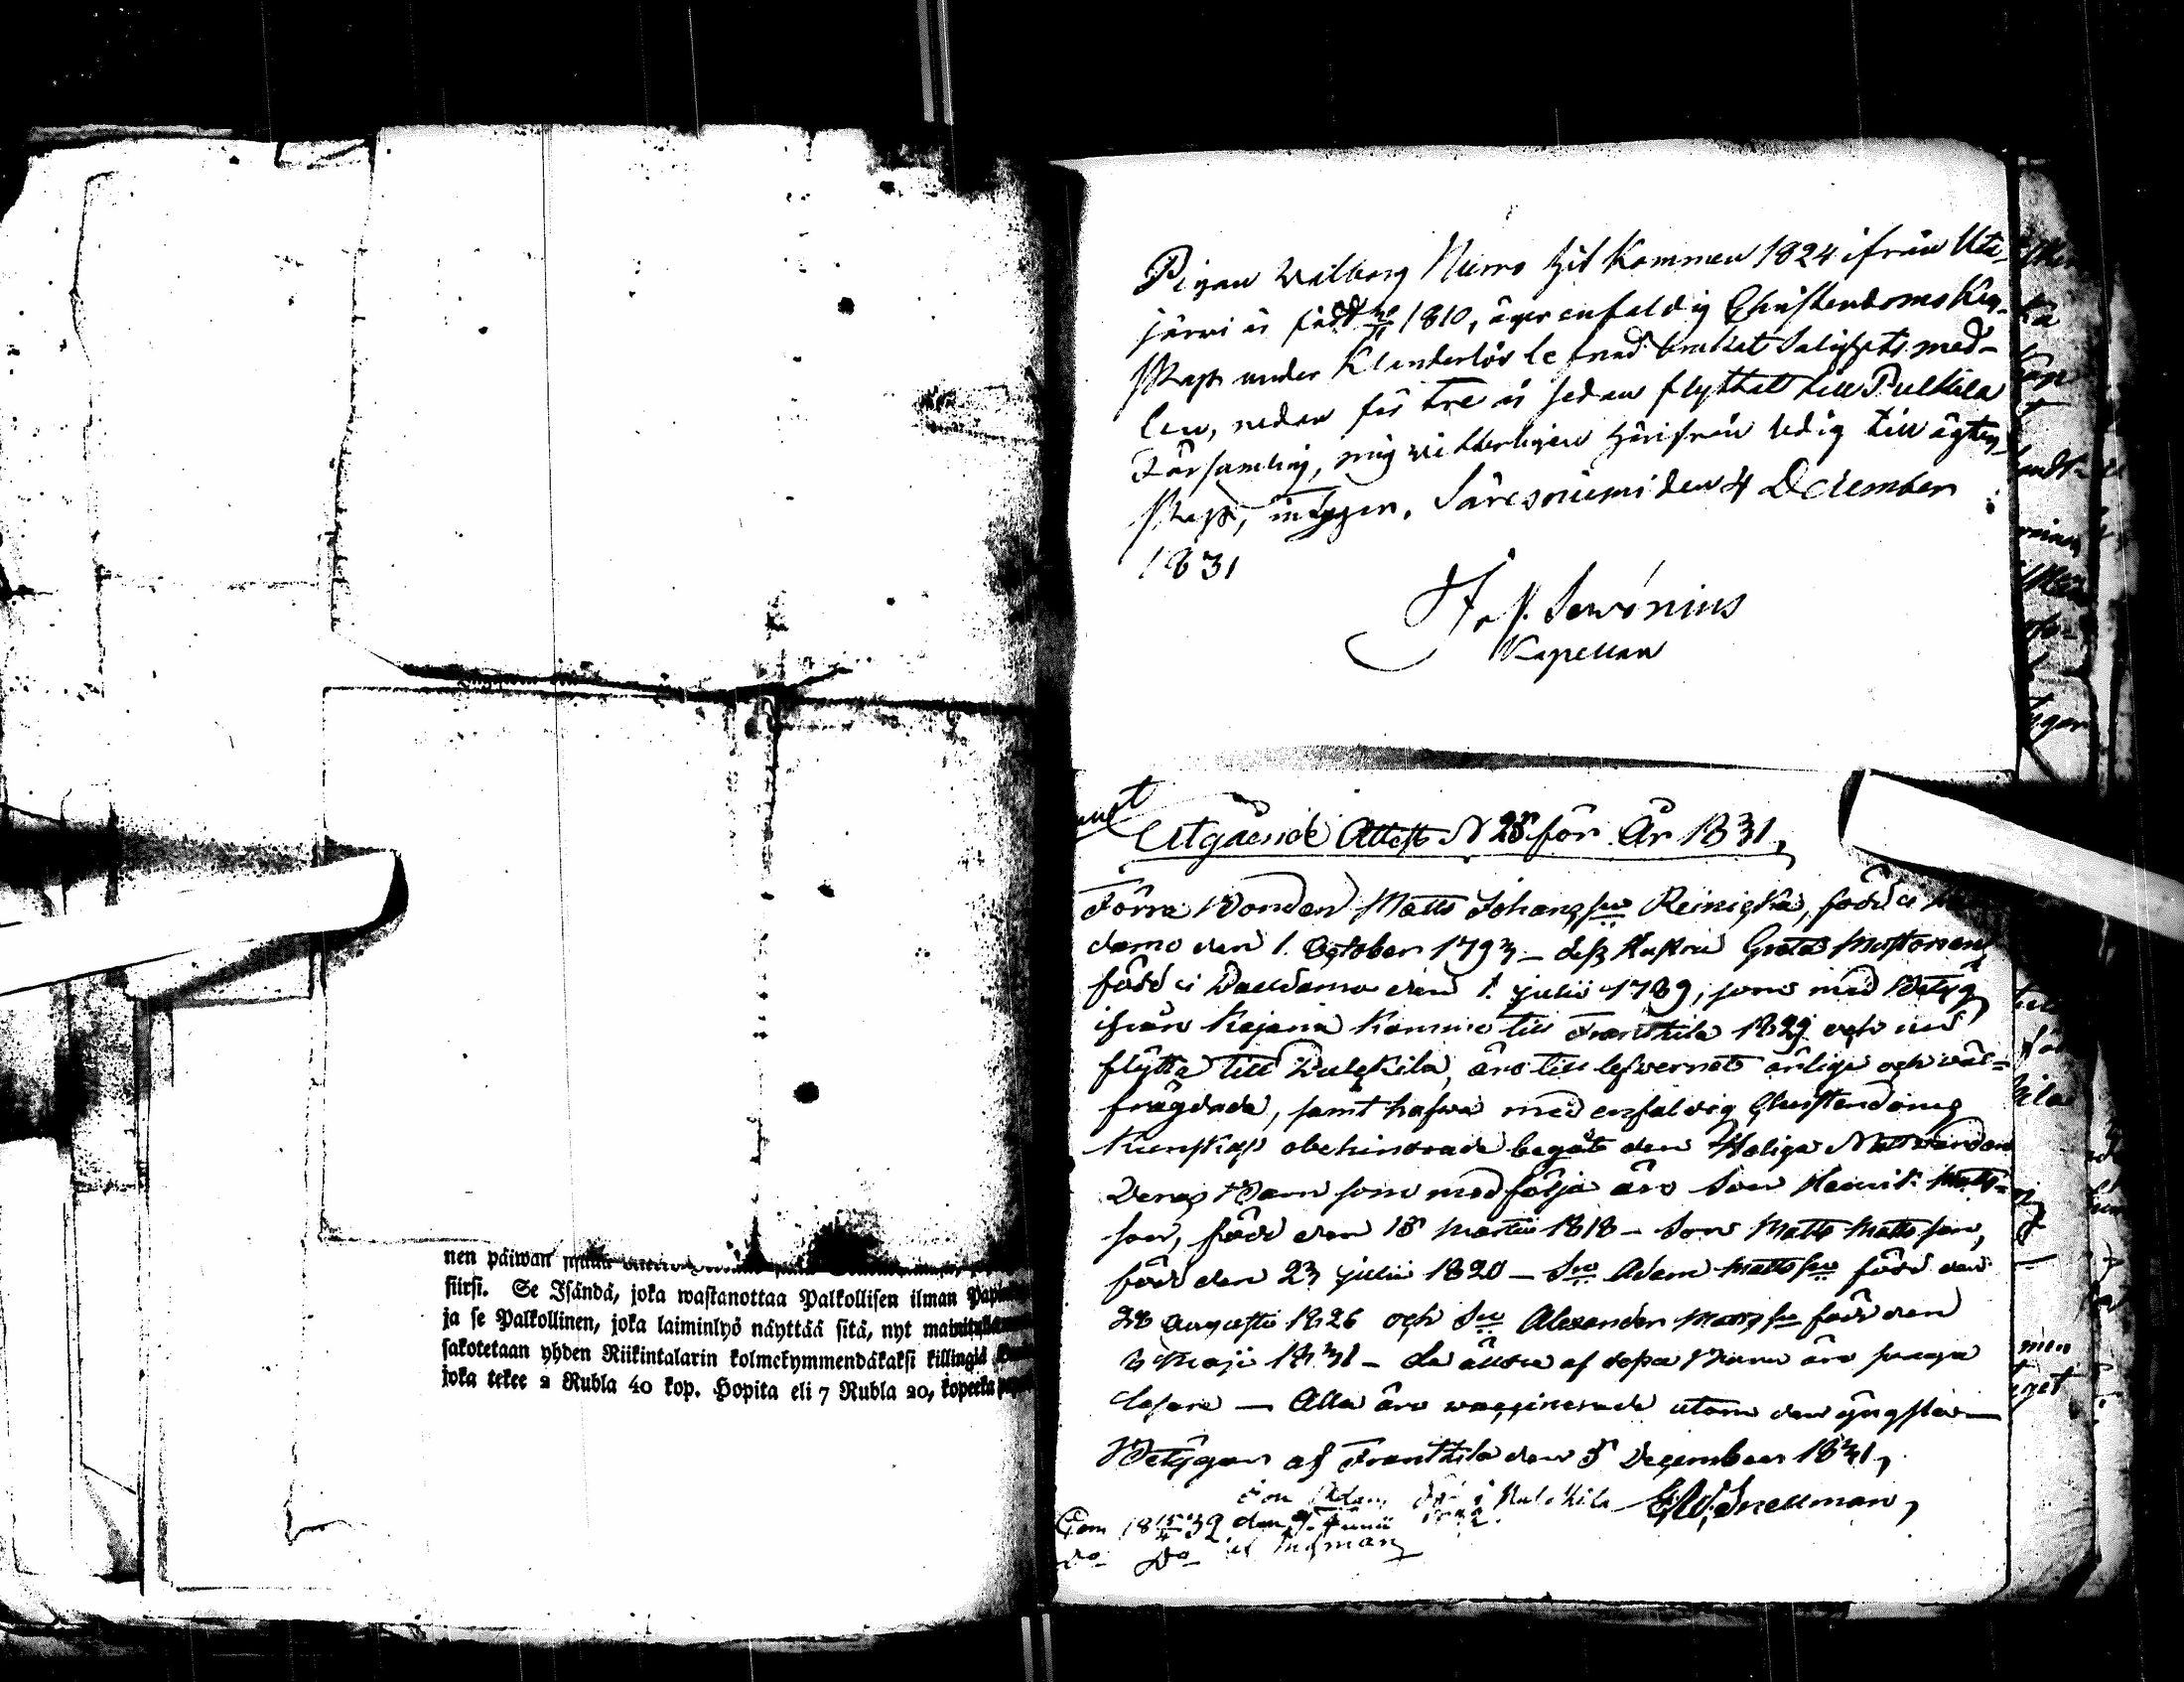 nen päiwan sisällä
siirsi. Se Isändä, joka wastanottaa Palkollisen ilman
ja se Palkollinen, joka laiminlyö näyttää sitä, nyt
sakotetaan yhden Riikintalarin kolmekymmendäkaksi killingiä
joka tekee 2 Rubla 40 kop. Hopita eli 7 Rubla 20, kopeeka
Pigan Walborg Nurro hit kommen 1824 ifrån Uta-
järwi är född 1810, äger enfaldig Christendoms kun-
skap under klanderlös lefnad brukat Salighets med-
len, nedan för tre år sedan flyttat till Pulkila
Församling, mig witterligen härifrån ledig till ägten-
skap, intygar. Säresniemi den 4 December
1831
Joh. Servónius
Kapellan
Utgående Attest N 28 för År 1831,
Förra Bonden Matts Johansson Reinicka, född i
damo den 1. October 1793 – dess Hustru Greta Mustonen
född i Paldamo den 1. Julii 1789, som med Betyg
ifrån Kajana kommo till Frantsila 1829 och nu
flytta till Pulkkila, äro till lefwernet ärlige och wäl-
frägdade, samt hafwa med enfaldig Christendoms
Kunskap obehindrade begått den Heliga Nattwarden
Deras Barn som medfölja äro Son Henrik Matts-
son, född den 18 Martii 1818 – Son Matts Mattsson,
född den 23 Julii 1820 – Sn Adam Mattsson född den
28 Augusti 1826 och Sn Alexander Mattsson född den
3 Maji 1831 – De äldre af dessa Barn äro swaga
läsare — Alla äro waccinerade utom den yngsta —
Betygar af Frantsila den 5 December 1831,
E. W. Snellman,
Son Adam död i Pulkila
den 9. Junii 1832.